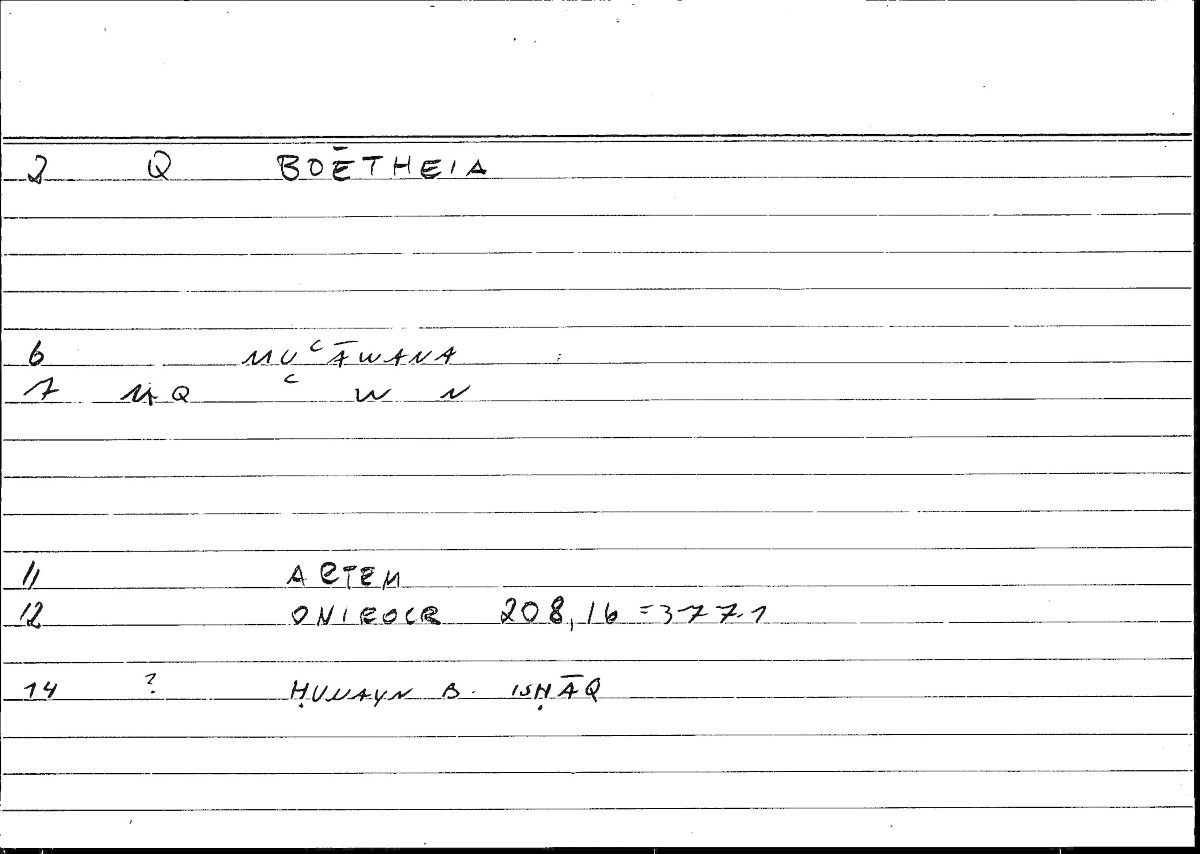 2 Q BOĒTHEIA
6 MUʿĀWANA
7 MQ ʿ W N
11 ARTEM
12 ONIROCR 208,16 = 377.1
14 ? ḤUNAYN B. ISḤĀQ